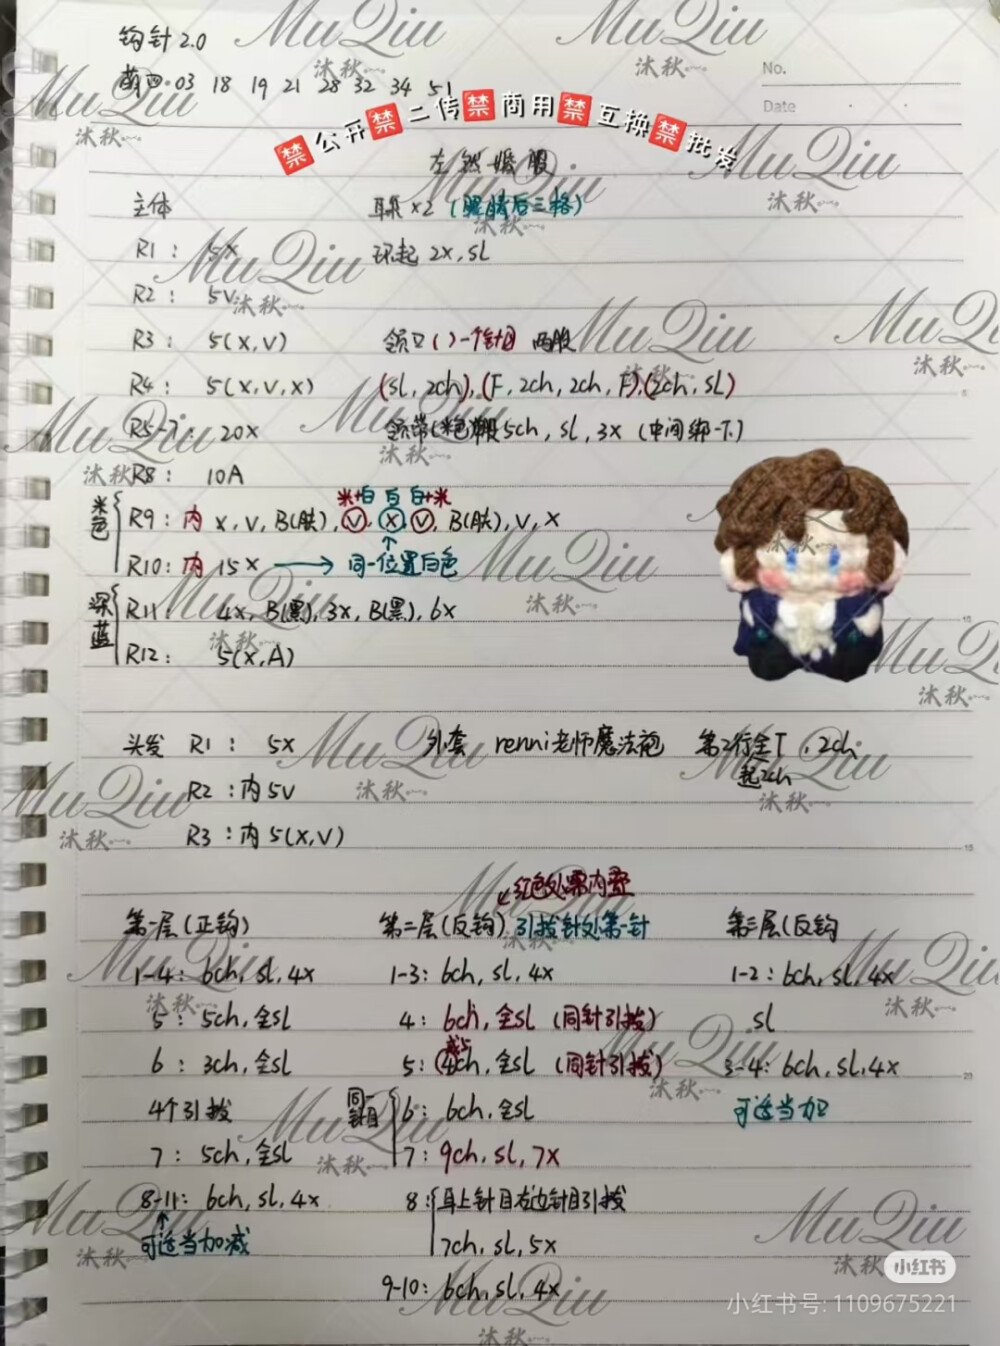 钩针2.0
萌四:03 18 19 21 28 32 34 51
No.
Date
禁公开禁二传禁商用禁互换禁批发
左然婚服
主体 耳朵×2 (眼睛后三格)
R1: 5X 环起 2X, sl
R2: 5V
R3: 5(X,V) 领口()一个针目 两股
R4: 5(X,V,X) (sl, 2ch),(F,2ch,2ch,F),(2ch,sl)
R5-7: 20X 领带(米色) 5ch, sl, 3X (中间绑一下)
R8: 10A
米+白 白 白+米
米色 R9: 内 X, V, B(肤), V, X, V, B(肤), V, X
R10: 内 15X → 同一位置白色
深蓝 R11: 4X, B(黑), 3X, B(黑), 6X
R12: 5(X,A)
头发 R1: 5X 外套 renni老师魔法袍 第2行全T, 2ch
起2ch
R2: 内5V
R3: 内5(X,V)
红色处需内叠
第一层(正钩) 第二层(反钩) 引拔针处第一针 第三层(反钩
1-4: 6ch, sl, 4X 1-3: 6ch, sl, 4X 1-2: 6ch, sl, 4X
5: 5ch, 全sl 4: 6ch, 全sl (同针引拔) sl
6: 3ch, 全sl 5: (4ch, 全sl (同针引拔) 3-4: 6ch, sl, 4X
4个引拔 同一针目 6: 6ch, 全sl 可适当加
7: 5ch, 全sl 7: 9ch, sl, 7X
8-11: 6ch, sl, 4X 8: 耳上针目右边针目引拔
可适当加减 7ch, sl, 5X
9-10: 6ch, sl, 4X
MuQiu
沐秋
小红书
小红书号: 1109675221